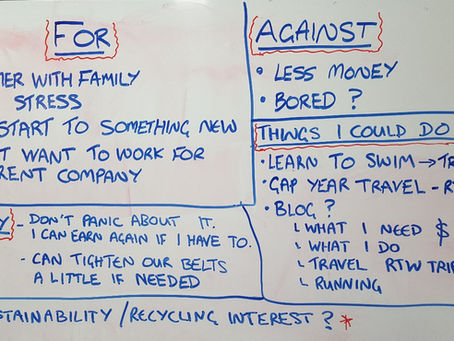 FOR
MER WITH FAMILY
STRESS
START TO SOMETHING NEW
T WANT TO WORK FOR
RENT COMPANY
- DON'T PANIC ABOUT IT.
I CAN EARN AGAIN IF I HAVE TO.
- CAN TIGHTEN OUR BELTS
A LITTLE IF NEEDED
AGAINST
• LESS MONEY
• BORED ?
THINGS I COULD DO
• LEARN TO SWIM → TR
• GAP YEAR TRAVEL - RT
• BLOG ?
WHAT I NEED $
WHAT I DO
TRAVEL RTW TRIP
RUNNING
STAINABILITY / RECYCLING INTEREST ? *